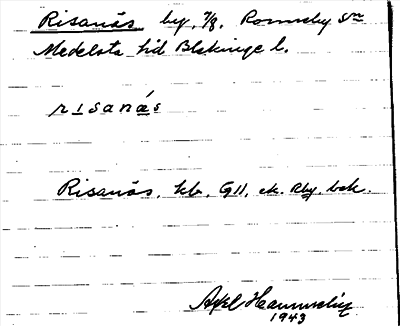 Risanäs by, 7/8, Ronneby sn
Medelsta hd Blekinge l.
risanás
Risanäs, kb, G11, ek. Rby. bok.
Axel
1943